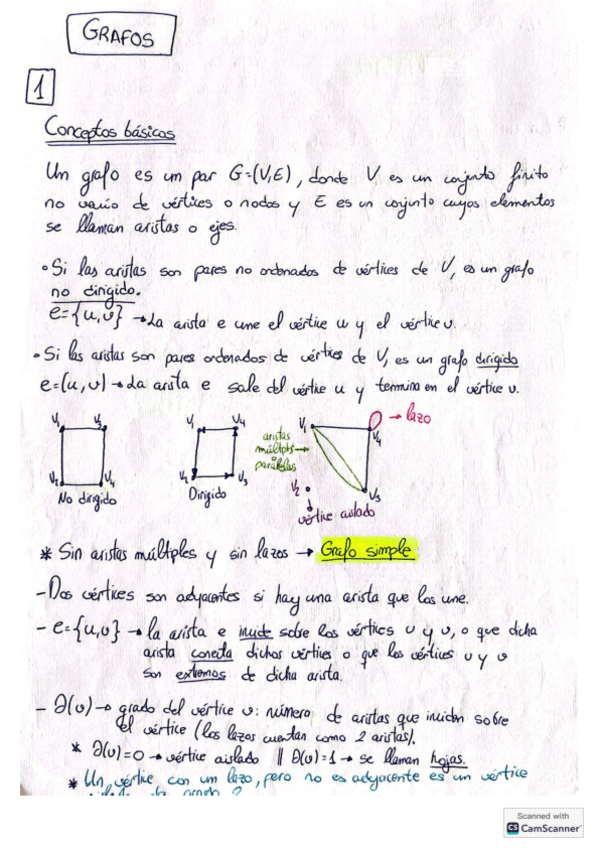 GRAFOS
1
Conceptos básicos
Un grafo es un par G=(V,E), donde V es un conjunto finito
no vacío de vértices o nodos y E es un conjunto cuyos elementos
se llaman aristas o ejes.
• Si las aristas son pares no ordenados de vértices de V, es un grafo
no dirigido.
e={u,v} → La arista e une el vértice u y el vértice v.
• Si las aristas son pares ordenados de vértices de V, es un grafo dirigido
e=(u,v) → La arista e sale del vértice u y termina en el vértice v.
No dirigido
Dirigido
V1
V4
aristas
múltipls
o
paralelas
→ lazo
V2
V3
vértice aislado
* Sin aristas múltiples y sin lazos → Grafo simple
- Dos vértices son adyacentes si hay una arista que los une.
- e={u,v} → la arista e incide sobre los vértices u y v, o que dicha
arista conecta dichos vértices o que los vértices u y v
son extremos de dicha arista.
- ∂(v) → grado del vértice v: número de aristas que inciden sobre
el vértice (los lazos cuentan como 2 aristas).
* ∂(v)=0 → vértice aislado || ∂(v)=1 → se llaman hojas.
* Un vértice con un lazo, pero no es adyacente es un vértice
Scanned with
CS CamScanner